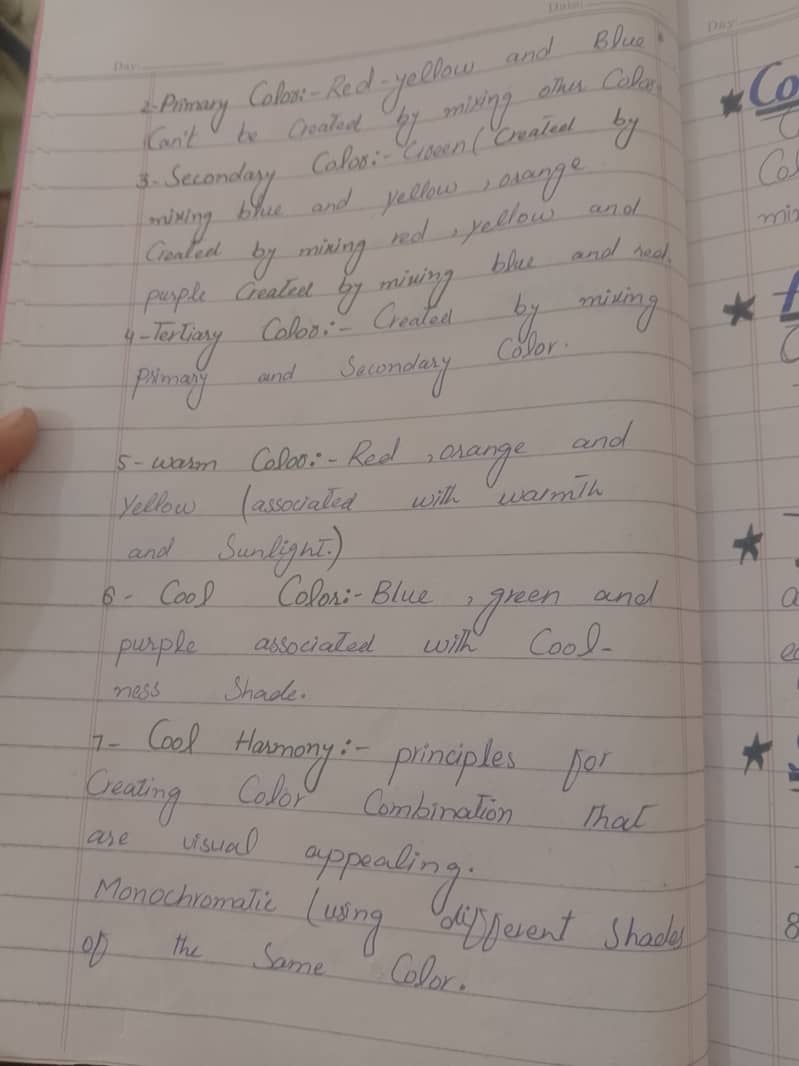 Day
Day
2-Primary Color:- Red-yellow and Blue.
Can't be Created by mixing other Color.
3- Secondary Color:- Green (Created by
mixing blue and yellow, orange
Created by mixing red, yellow and
purple Created by mixing blue and red.
4-Tertiary Color:- Created by mixing
Primary and Secondary Color.
5-warm Color:- Red, orange and
Yellow (associated with warmth
and Sunlight.)
6- Cool Color:- Blue, green and
purple associated with Cool-
ness Shade.
7- Cool Harmony:- principles for
Creating Color Combination that
are visual appealing.
Monochromatic (using different Shades
of the Same Color.
Co
mix
8